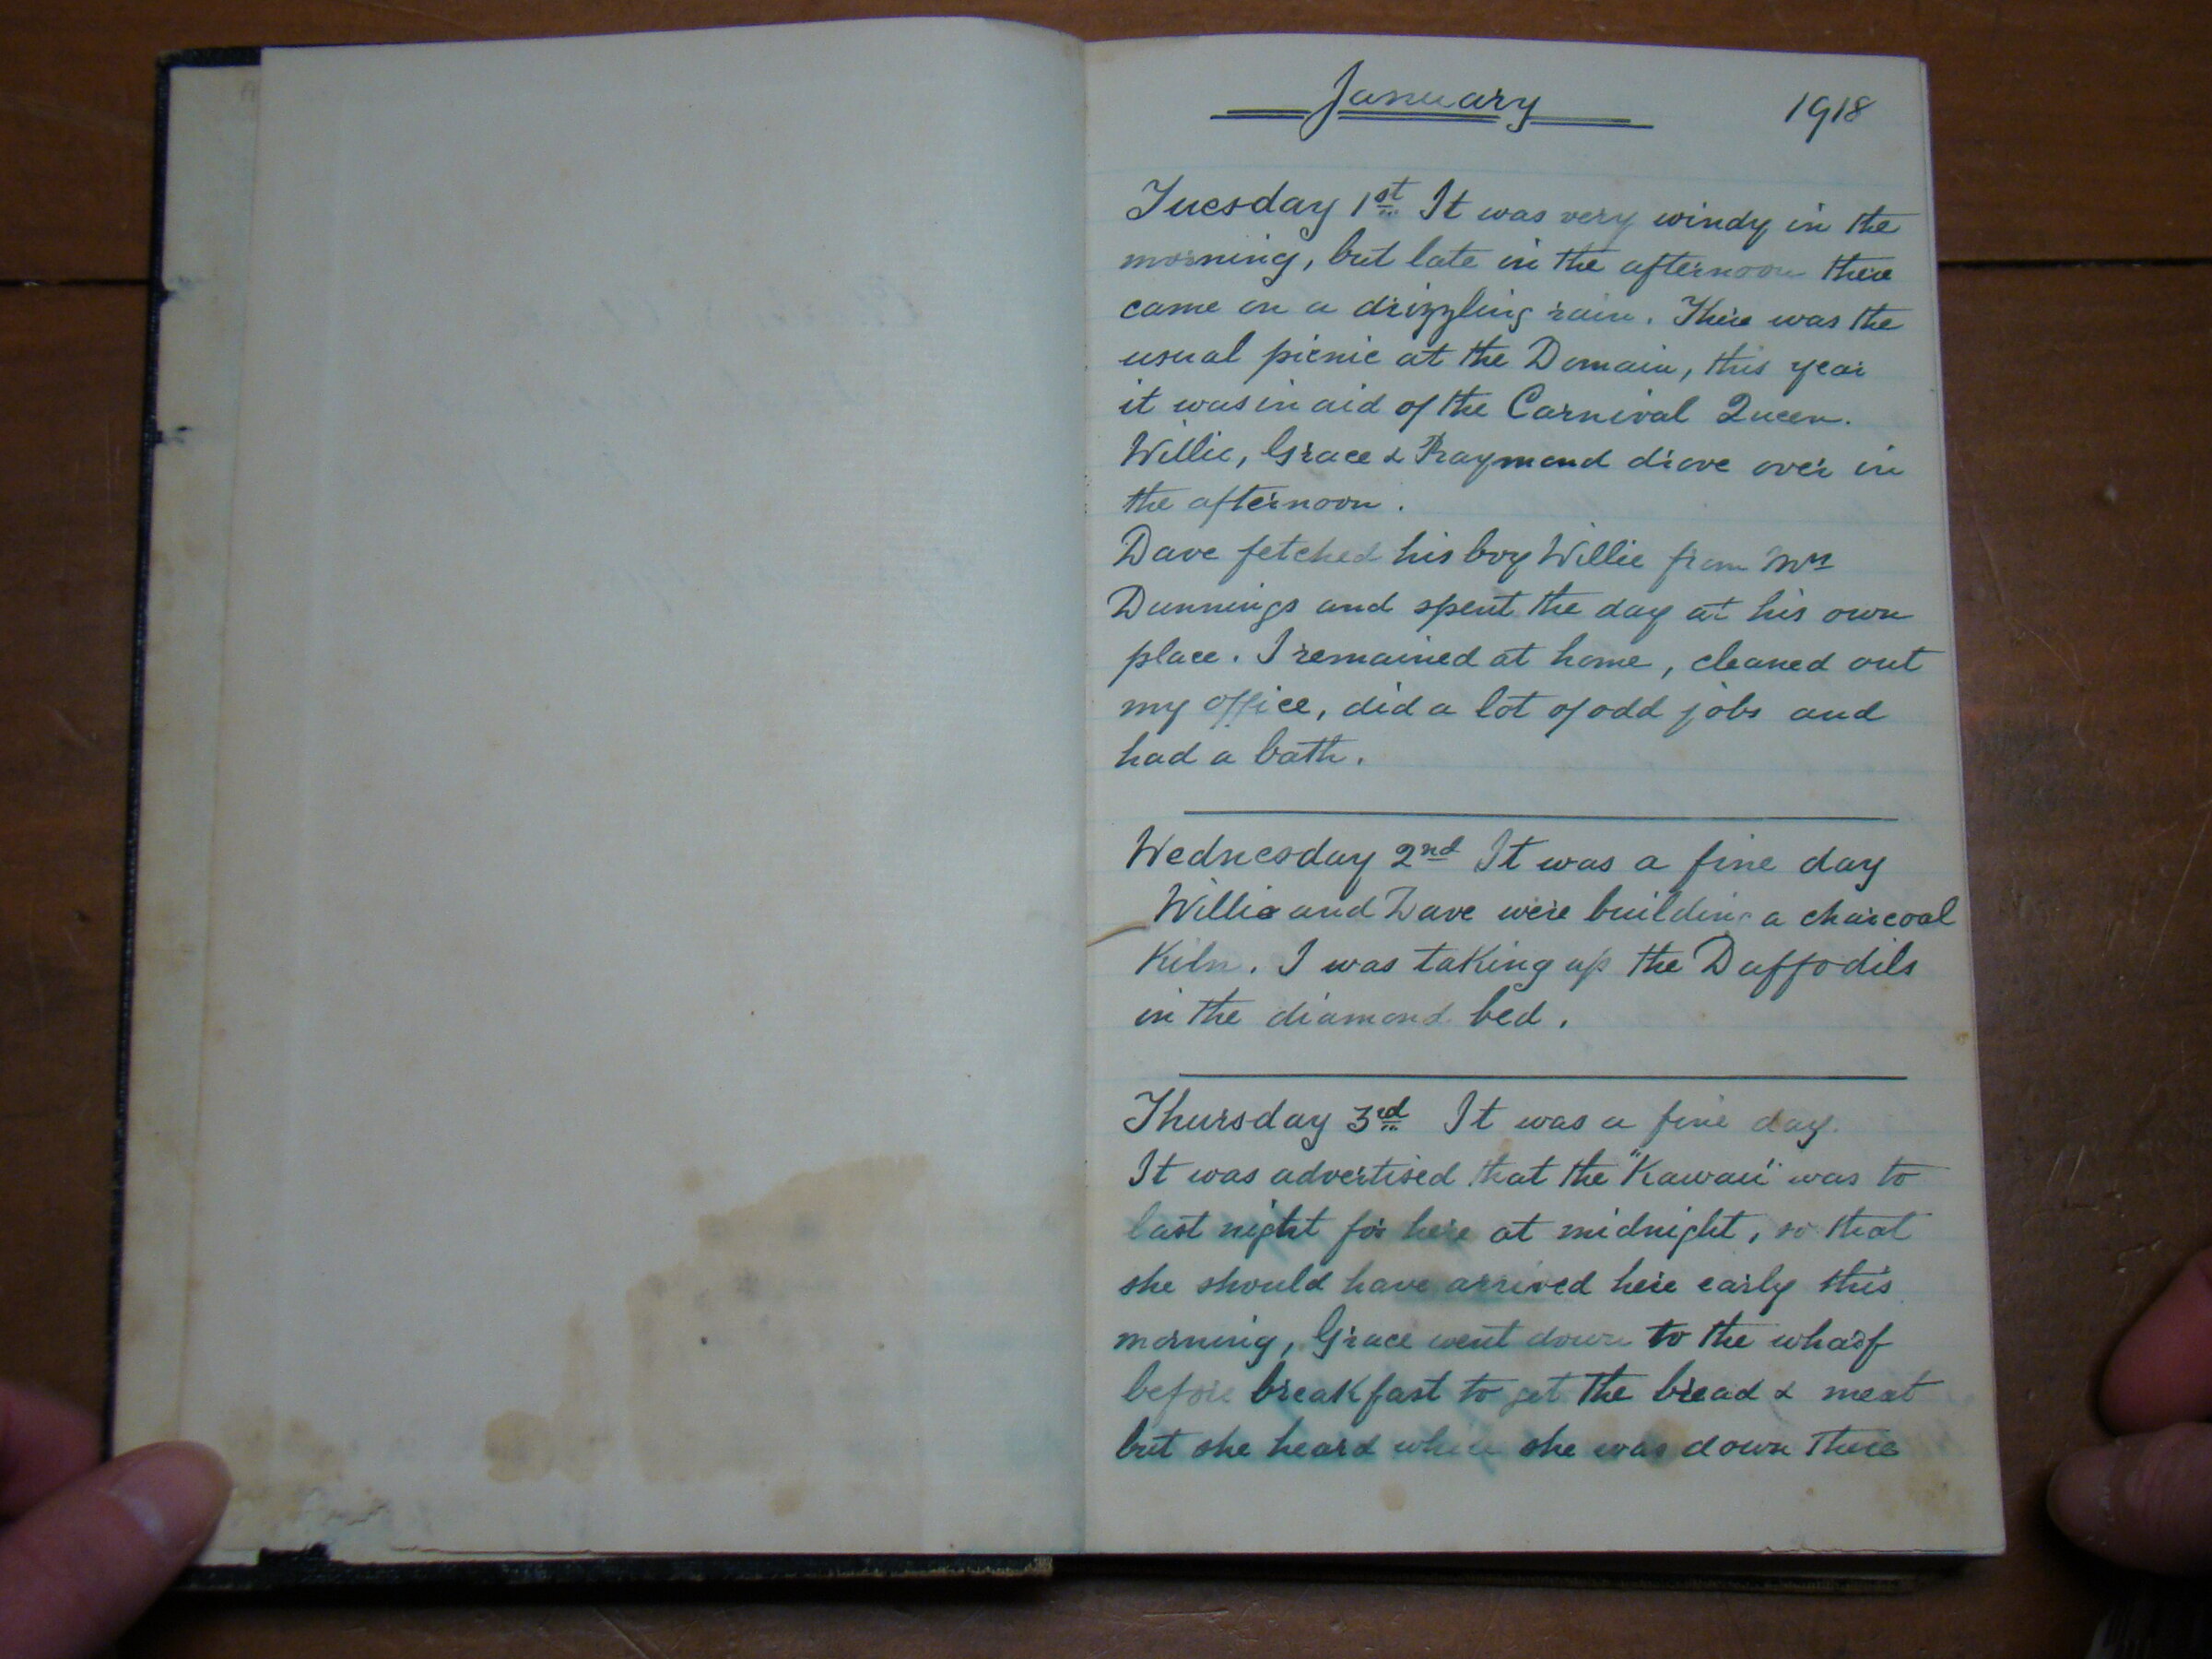 January 1918
Tuesday 1st It was very windy in the
morning, but late in the afternoon there
came on a drizzling rain. There was the
usual picnic at the Domain, this year
it was in aid of the Carnival Queen.
Willie, Grace & Raymond drove over in
the afternoon.
Dave fetched his boy Willie from Mrs
Dunnings and spent the day at his own
place. I remained at home, cleaned out
my office, did a lot of odd jobs and
had a bath.
Wednesday 2nd It was a fine day
Willie and Dave were building a charcoal
Kiln. I was taking up the Daffodils
in the diamond bed.
Thursday 3rd It was a fine day.
It was advertised that the "Kawau" was to
last night for here at midnight, so that
she should have arrived here early this
morning, Grace went down to the wharf
before breakfast to get the bread & meat
but she heard when she was down there